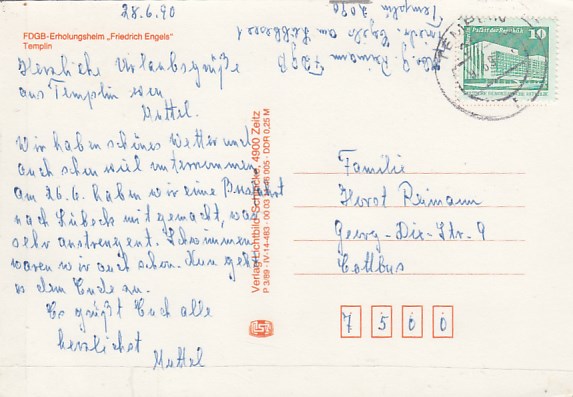 28.6.90
FDGB-Erholungsheim „Friedrich Engels"
Templin
Herzliche Urlaubsgrüße
aus Templin von
Muttel.
Wir haben schönes Wetter und
auch schon viel unternommen
am 26.6. haben wir eine Busfahrt
nach Lübeck mitgemacht, war
sehr anstrengent. Schwimmen
waren wir auch schon. Nun geht
es dem Ende zu.
Es grüßt Euch alle
herzlichst
Muttel
Reimann FDGB
Templin 2090
Verlag Lichtbild-Schincke, 4900 Zeitz
P 3/89 · IV-14-483 · 005 · DDR 0,25 M
Palast der Republik
10
Familie
Horst Reimann
Georg-Dix-Str. 9
Cottbus
7 5 0 0